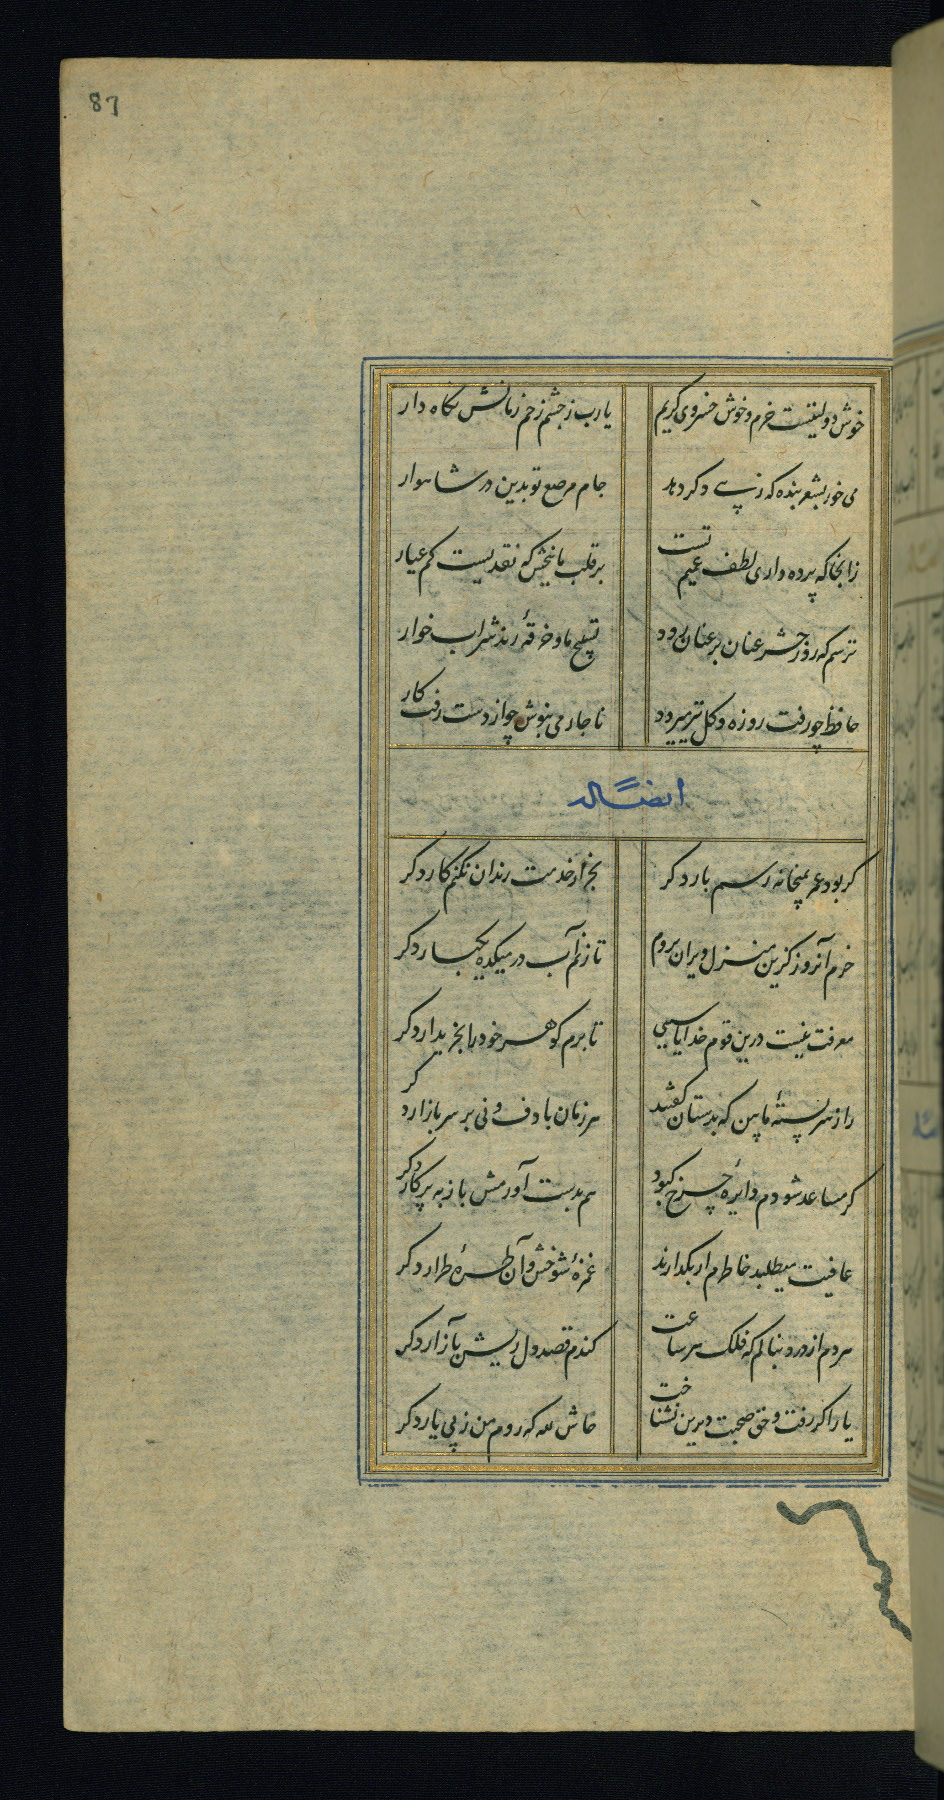 87
خوش دولتیست خرم و خوش خسروی کریم یارب ز چشم زخم زمانش نگاه دار
می خور بشعر بنده که زیبی دگر دهد جام مرصع تو بدین در شاهوار
زانجا که پرده داری لطف عمیم تست بر قلب ما ببخش که نقدیست کم عیار
ترسم که روز حشر عنان بر عنان رود تسبیح ما و خرقهٔ رند شراب خوار
حافظ چو رفت روزه و گل نیز میرود ناچار می بنوش چو از دست رفت کار
ایضاً له
کر بود عمر بمیخانه رسم بار دکر بجز از خدمت رندان نکنم کار دکر
خرم آنروز کزین منزل ویران بروم تا زنم آب در میکده یکبار دکر
معرفت نیست درین قوم خدایا سببی تا برم کوهر خود را بخریدار دکر
راز سربستهٔ ما بین که بدستان کفتند هر زمان با دف و نی بر سر بازار دکر
کر مساعد شودم دایرهٔ چرخ کبود هم بدست آورمش باز به پرکار دکر
عافیت میطلبد خاطرم ار بکذارند غمزهٔ شوخش و آن طرهٔ طرار دکر
هر دم از درد بنالم که فلک هر ساعت کندم قصد دل ریش بآزار دکر
یار اکر رفت و حق صحبت دیرین نشناخت حاش لله که روم من ز پی یار دکر